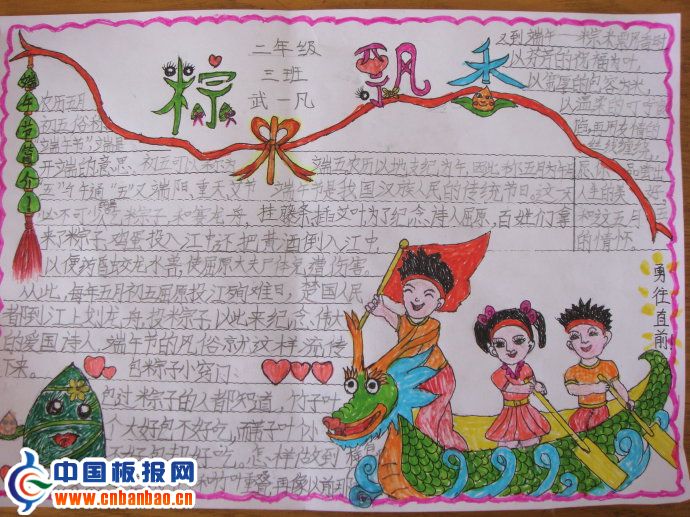 粽飘香
二年级
三班
武一凡
端午节简介
又到端午——粽米飘香时
以芬芳的祝福为叶,
以宽厚的包容为米,
以温柔的叮咛
陷,再用友情的
丝线缠绕,
人生的美好,
和这五月
的情怀。
农历五月
初五,俗称
"端午节"端是
开端的意思、初五可以称为
端五,农历以地支纪为午,因此称五月为午
五"午"通"五"又端阳、重五节,端午节是我国汉族人民的传统节日。这一天
必不可少吃粽子,和赛龙舟,挂藤条,插艾叶,为了纪念、诗人屈原,百姓们拿
来了粽子、鸡蛋投入江中还把黄酒倒入江中
以便药昏蛟龙水兽,使屈原大夫尸体免遭伤害。
从此,每年五月初五屈原投江殉难日,楚国人民
都到江上划龙舟、投粽子,以此来纪念、伟大
的爱国诗人,端午节的风俗就这样流传
下来。
包粽子小窍门:
包过粽子的人都知道,竹子叶
个大好包不好吃,而苇子叶
好吃,怎样做到
和竹叶重叠,再像以前
勇往直前
中国板报网
www.cnbanbao.cn